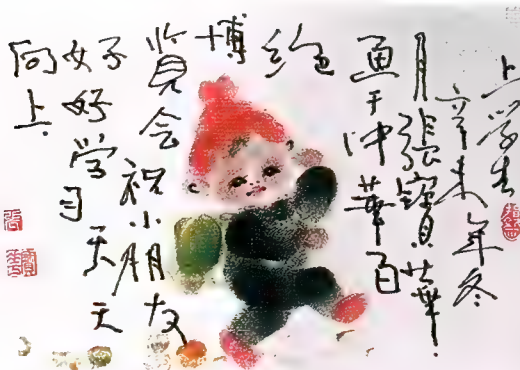 上学去
辛未年冬
月張寶華
画于中華百
绝
博
览会
祝小朋友
好好学习天天
向上